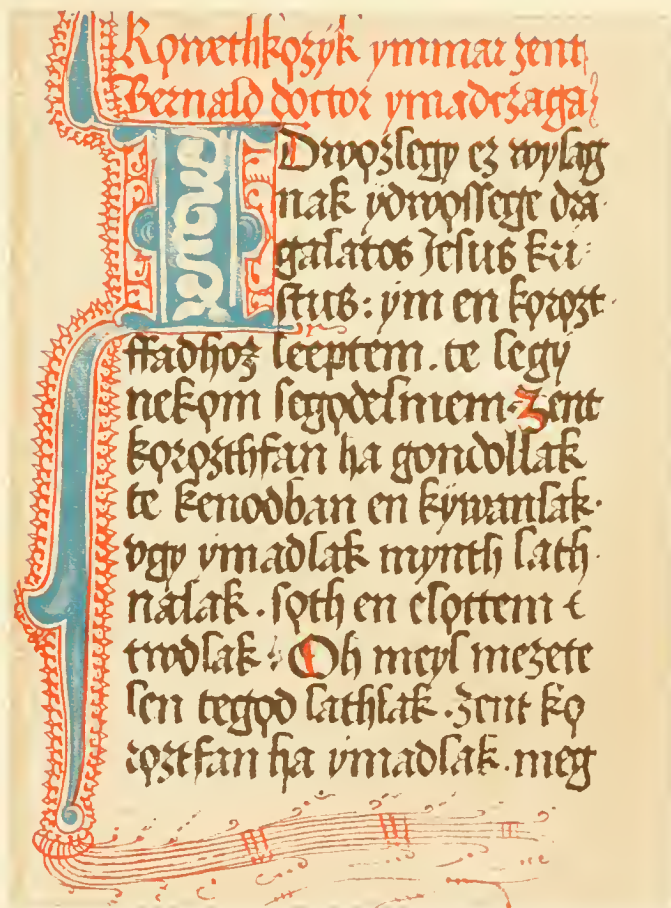 Kowethkozyk ymmar zent
Bernald doctor ymadczaga
IDwozlegy ez wylag
nak ydwossege dra
galatos Jesus kri
stus: ym en korozt
ffadhoz leeptem. te legy
nekom segodelmem. Zent
korozthfan ha gondollak
te kenodban en kywansak.
vgy ymadlak mynth lath
nalak. soth en elottem t
trodlak: Oh meyl mezete
len tegod lathlak. Zent ko
roztfan ha ymadlak. meg